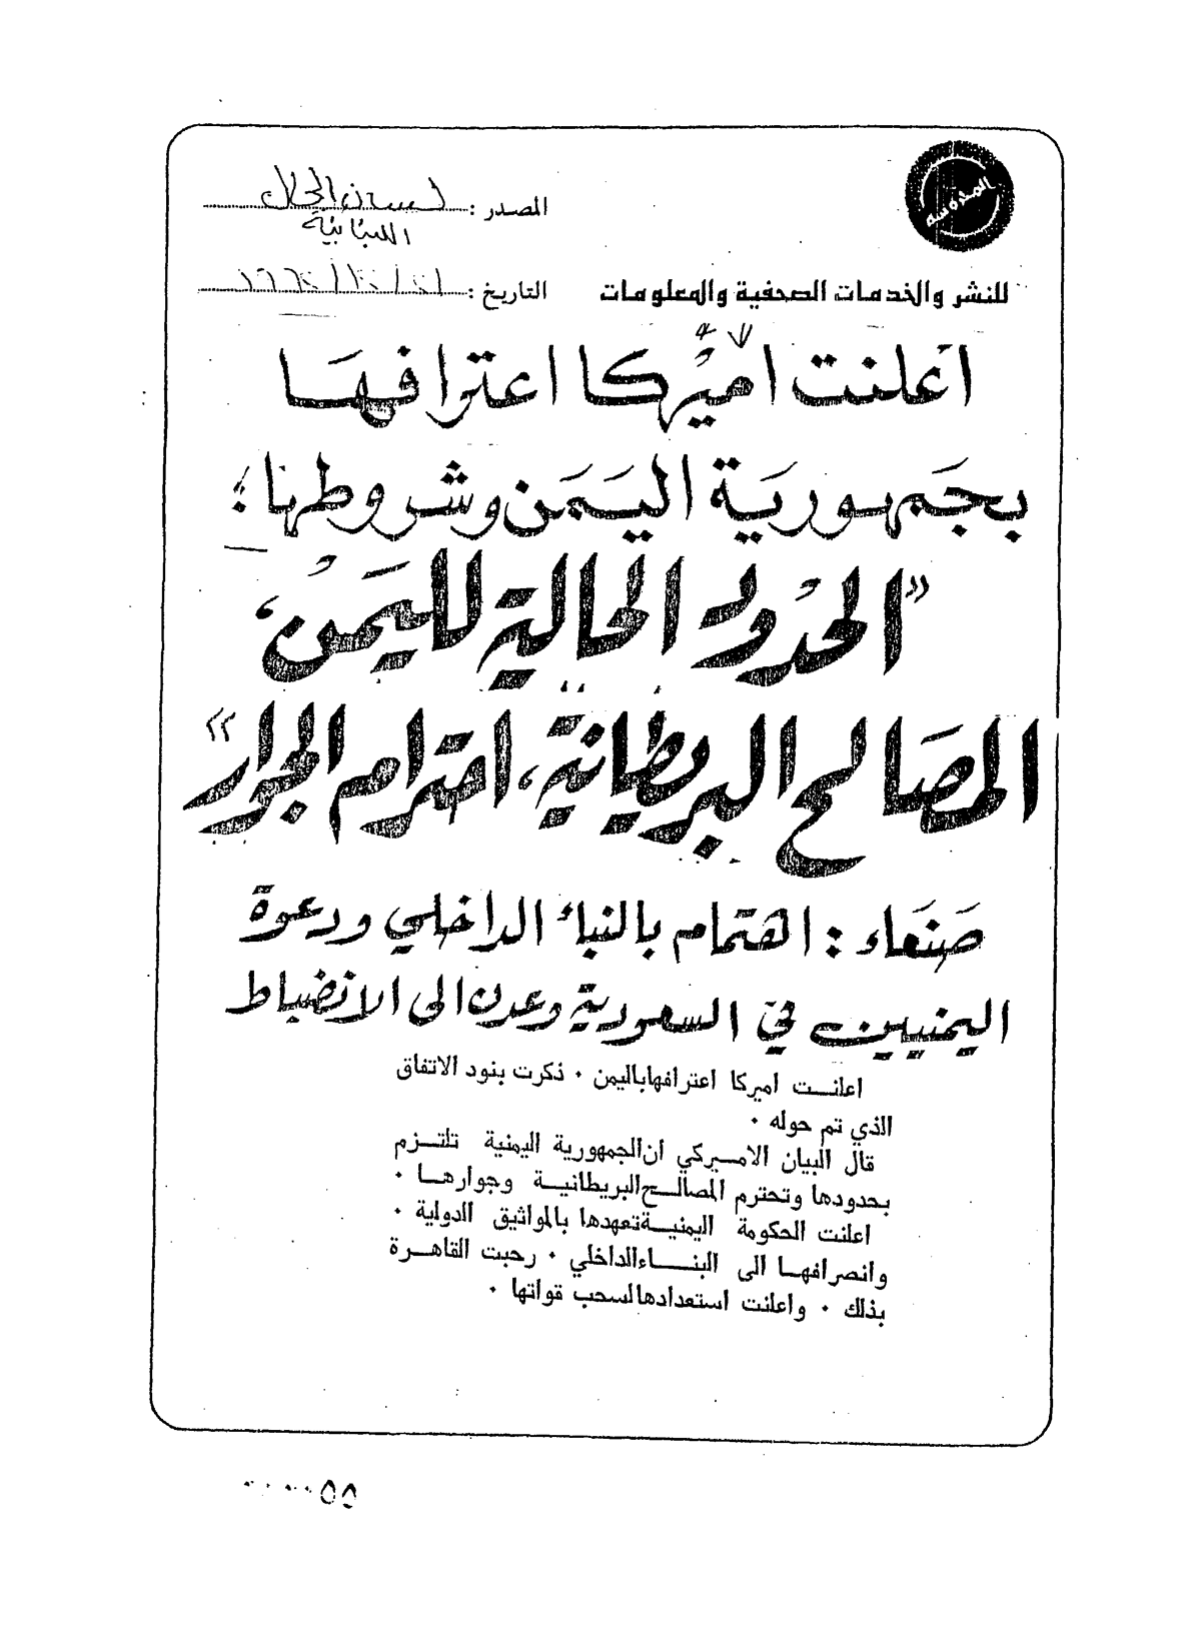 المصدر : لسان الحال
اللبنانية
للنشر والخدمات الصحفية والمعلومات
التاريخ :
اعلنت اميركا اعترافها
بجمهورية اليمن وشروطها :
"الحدود الحالية لليمن ،
المصالح البريطانية ، احترام الجوار"
صنعاء : اهتمام بالنباء الداخلي ودعوة
اليمنيين في السعودية وعدن الى الانضباط
اعلنـــت اميركا اعترافهاباليمن ٠ ذكرت بنود الاتفاق
الذي تم حوله ٠
قال البيان الامـــيركي ان الجمهورية اليمنية تلتـــزم
بحدودها وتحترم المصالـــح البريطانيـــة وجوارهـــا ٠
اعلنت الحكومة اليمنيـــة تعهدها بالمواثيق الدولية ٠
وانصرافهـــا الى البنـــاء الداخلي ٠ رحبت القاهـــرة
بذلك ٠ واعلنت استعدادها لسحب قواتها ٠